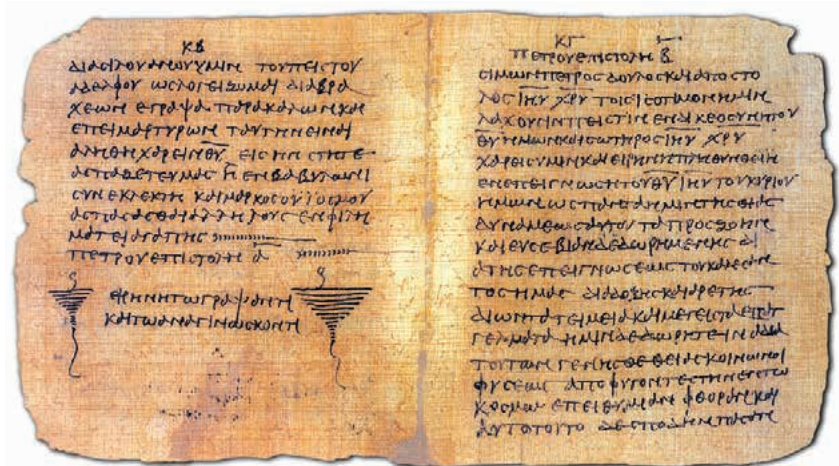 ΚΒ
ΔΙΑΣΙΛΟΥΑΝΟΥΥΜΙΝ ΤΟΥΠΕΙΣΤΟΥ
ΑΔΕΛΦΟΥ ΩΣΛΟΓΕΙΖΟΜΑΙ ΔΙΑΒΡΑ
ΧΕΩΝ ΕΓΡΑΨΑ ΠΑΡΑΚΑΛΩΝ ΚΑΙ
ΕΠΕΙΜΑΡΤΥΡΩΝ ΤΑΥΤΗΝΕΙΝΑΙ
ΑΛΗΘΗ ΧΑΡΕΙΝ Θ̅Υ̅ ΕΙΣ ΗΝ ΣΤΗΤΕ
ΑΣΠΑΖΕΤΕΥΜΑΣ Η ΕΝΒΑΒΥΛΩΝΙ
ΣΥΝΕΚΛΕΚΤΗ ΚΑΙΜΑΡΚΟΣΟΥΙΟΣΜΟΥ
ΑΣΠΑΣΑΣΘΑΙΑΛΛΗΛΟΥΣ ΕΝΦΙΛΗ
ΜΑΤΕΙΑΓΑΠΗΣ
ΠΕΤΡΟΥΕΠΙΣΤΟΛΗ Α̅
ΕΙΡΗΝΗΤΩΓΡΑΨΑΝΤΙ
ΚΑΙΤΩΑΝΑΓΙΝΩΣΚΟΝΤΙ
ΚΓ
ΠΕΤΡΟΥΕΠΙΣΤΟΛΗ Β̅
ΣΙΜΩΝΠΕΤΡΟΣ ΔΟΥΛΟΣΚΑΙΑΠΟΣΤΟ
ΛΟΣ Ι̅Η̅Υ̅ Χ̅Ρ̅Υ̅ ΤΟΙΣΙΣΟΤΙΜΟΝΗΜΙΝ
ΛΑΧΟΥΣΙΝΠΕΙΣΤΙΝ ΕΝΔΙΚΕΟΣΥΝΗΤΟΥ
Θ̅Υ̅ ΗΜΩΝΚΑΙΣΩΤΗΡΟΣ Ι̅Η̅Υ̅ Χ̅Ρ̅Υ̅
ΧΑΡΕΙΣΥΜΙΝΚΑΙΕΙΡΗΝΗΠΛΗΘΥΝΘΕΙΗ
ΕΝΕΠΕΙΓΝΩΣΗΤΟΥ Θ̅Υ̅ Ι̅Η̅Υ̅ ΤΟΥΚΥΡΙΟΥ
ΗΜΩΝ ΩΣΠΑΝΤΑΗΜΙΝΤΗΣΘΙΑΣ
ΔΥΝΑΜΕΩΣΑΥΤΟΥ ΤΑΠΡΟΣΖΩΗΝ
ΚΑΙΕΥΣΕΒΙΑΝΔΕΔΩΡΗΜΕΝΗΣ ΔΙ
ΑΤΗΣ ΕΠΕΙΓΝΩΣΕΩΣ ΤΟΥΚΑΛΕΣΑΝ
ΤΟΣΗΜΑΣ ΔΙΑΔΟΞΗΣΚΑΙΑΡΕΤΗΣ
ΔΙΩΝΤΑΤΕΙΜΕΙΑΚΑΙΜΕΓΕΙΣΤΑΕΠΑΓ
ΓΕΛΜΑΤΑ ΗΜΙΝΔΕΔΩΡΗΤΕΙΝΑΔΙΑ
ΤΟΥΤΩΝ ΓΕΝΗΣΘΕ ΘΕΙΑΣΚΟΙΝΩΝΟΙ
ΦΥΣΕΩΣ ΑΠΟΦΥΓΟΝΤΕΣΤΗΝΕΝΤΩ
ΚΟΣΜΩ ΕΠΕΙΘΥΜΙΑΝ ΦΘΟΡΑΝ ΚΑΙ
ΑΥΤΟΤΟΥΤΟ ΔΕΣΠΟΔΗΝΠΑΣΑΝ